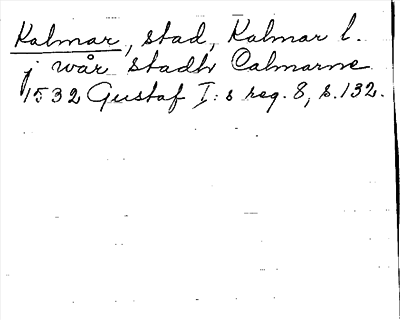 Kalmar, stad, Kalmar l.
j wår stadh Calmarne
1532 Gustaf I:s reg. 8, s. 132.